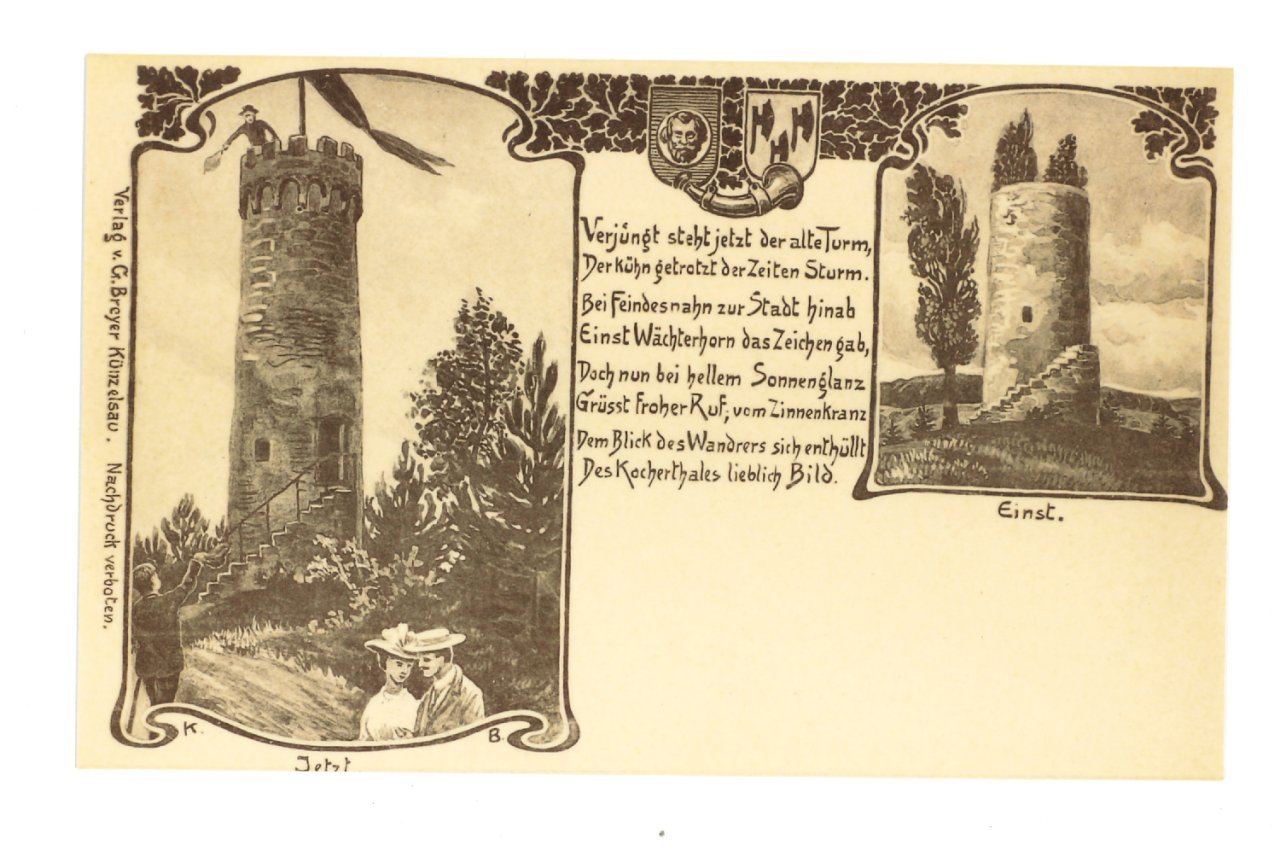 Verlag v. G. Breyer Künzelsau. Nachdruck verboten.
Verjüngt steht jetzt der alte Turm,
Der kühn getrotzt der Zeiten Sturm.
Bei Feindesnahn zur Stadt hinab
Einst Wächterhorn das Zeichen gab,
Doch nun bei hellem Sonnenglanz
Grüsst froher Ruf, vom Zinnenkranz
Dem Blick des Wandrers sich enthüllt
Des Kocherthales lieblich Bild.
Einst.
K. B.
Jetzt